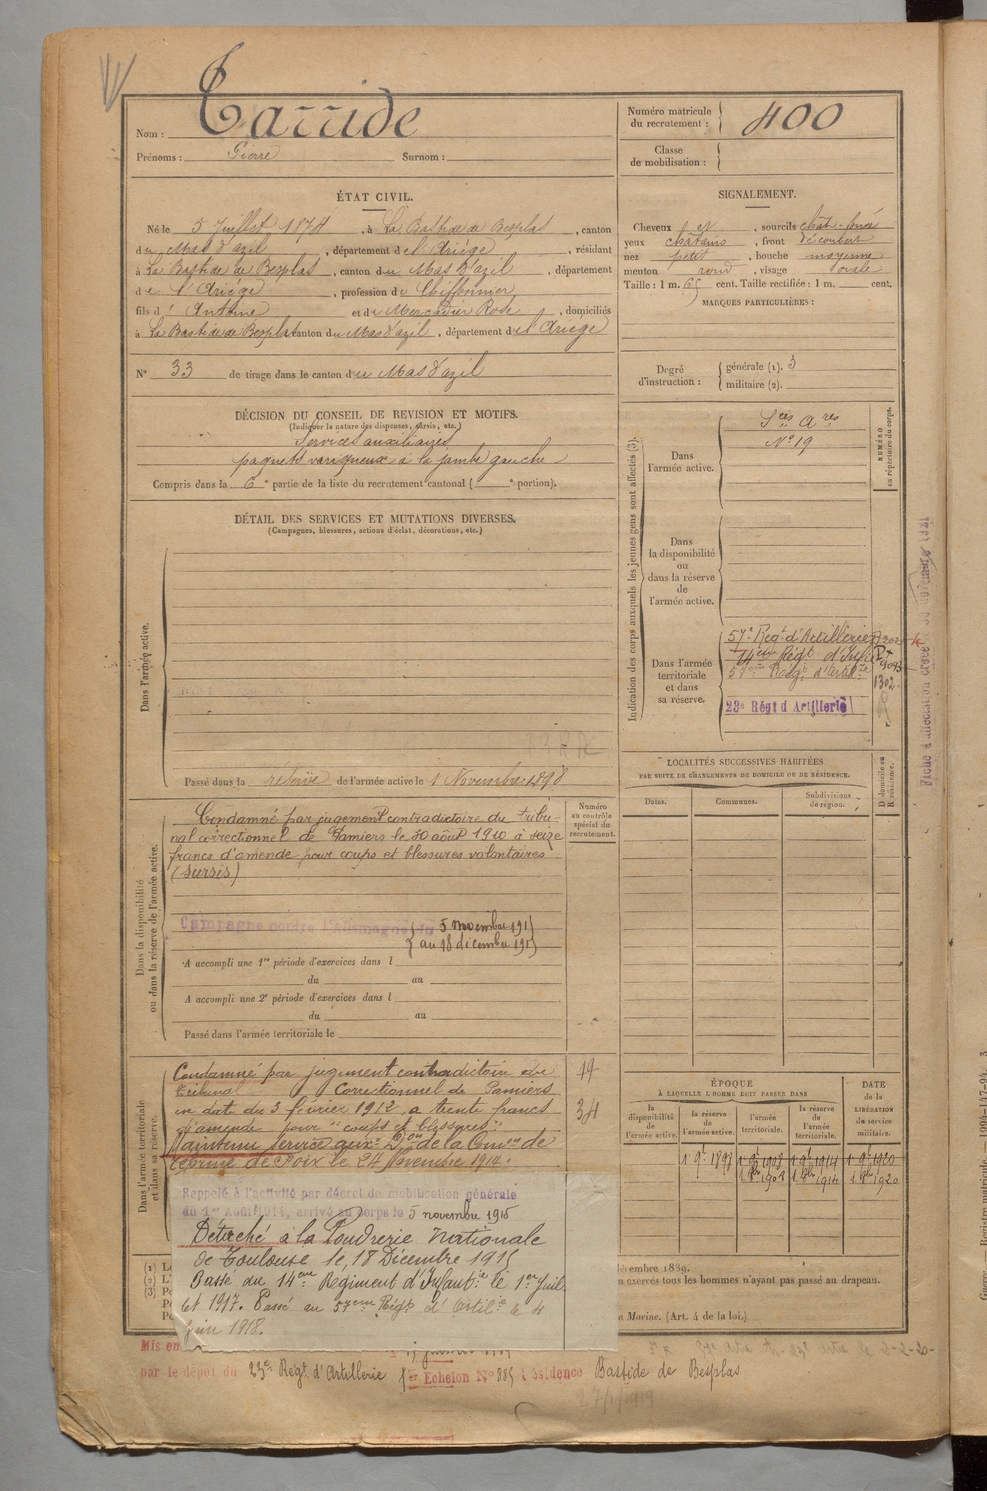 Nom : Tarride
Prénoms : Pierre Surnom :
Numéro matricule du recrutement : 400
Classe de mobilisation :
ÉTAT CIVIL.
Né le 5 Juillet 1874, à La Bastide de Besplas, canton
du Mas d'azil, département de l'Ariège, résidant
à La Bastide de Besplas, canton du Mas d'azil, département
de l'Ariège, profession de Chiffonnier
fils d' Antoine et de Mercadier Rose, domiciliés
à La Bastide de Besplas canton du Mas d'azil, département de l'Ariège
N° 33 de tirage dans le canton du Mas d'azil
SIGNALEMENT.
Cheveux et, sourcils chât. foncé
yeux châtains, front découvert
nez petit, bouche moyenne
menton rond, visage ovale
Taille : 1 m. 65 cent. Taille rectifiée : 1 m. cent.
MARQUES PARTICULIÈRES :
Degré d'instruction : générale (1). 3
militaire (2).
DÉCISION DU CONSEIL DE REVISION ET MOTIFS.
(Indiquer la nature des dispenses, sursis, etc.)
Services auxiliaires
paquets variqueux à la jambe gauche
Compris dans la 6e partie de la liste du recrutement cantonal ( e portion).
DÉTAIL DES SERVICES ET MUTATIONS DIVERSES.
(Campagnes, blessures, actions d'éclat, décorations, etc.)
Dans l'armée active.
Passé dans la réserve de l'armée active le 1 Novembre 1898
Indication des corps auxquels les jeunes gens sont affectés (3).
NUMÉRO au répertoire du corps.
Dans l'armée active.
Sces Ares
N° 19
Dans la disponibilité ou dans la réserve de l'armée active.
Dans l'armée territoriale et dans sa réserve.
57e Régt d'Artillerie
14eme Régt d'Infie
57eme Régt d'Artie
1302
23e Régt d'Artillerie
LOCALITÉS SUCCESSIVES HABITÉES
PAR SUITE DE CHANGEMENTS DE DOMICILE OU DE RÉSIDENCE.
Dates. Communes. Subdivisions de région. D domicile ou R résidence.
Dans la disponibilité ou dans la réserve de l'armée active.
Numéro au contrôle spécial du recrutement.
Condamné par jugement contradictoire du tribu-
nal correctionnel de Pamiers le 30 août 1910 à seize
francs d'amende pour coups et blessures volontaires
(sursis)
Campagne contre l'Allemagne du 5 novembre 1915
au 18 décembre 1915
A accompli une 1re période d'exercices dans l
du au
A accompli une 2e période d'exercices dans l
du au
Passé dans l'armée territoriale le
Dans l'armée territoriale et dans sa réserve.
Condamné par jugement contradictoire du
tribunal Correctionnel de Pamiers
en date du 3 février 1912, à trente francs
d'amende pour "coups et blessures"
Maintenu service auxre Don de la Comon de
réforme de Foix le 24 Novembre 1914.
44
34
Rappelé à l'activité par décret de mobilisation générale
du 1er Août 1914, arrivé au corps le 5 novembre 1915
Détaché à la Poudrerie Nationale
de Toulouse le, 18 Décembre 1915
Passé au 14eme Régiment d'Infantie le 1er Juil
let 1917. Passé au 57eme Régt d'Artilie le 4
Juin 1918.
ÉPOQUE
À LAQUELLE L'HOMME DOIT PASSER DANS
la disponibilité de l'armée active. la réserve de l'armée active. l'armée territoriale. la réserve de l'armée territoriale.
DATE de la LIBÉRATION du service militaire.
1 9bre 1898 1 9bre 1908 1 9bre 1914 1 9bre 1920
1 8bre 1904 1 8bre 1914 1 8bre 1920
(1)
(2)
(3)
décembre 1889.
n exercés tous les hommes n'ayant pas passé au drapeau.
a Marine. (Art. 4 de la loi.)
Mis en
par le dépôt du 23e Régt d'Artillerie 1er Echelon N° 885 Résidence Bastide de Besplas